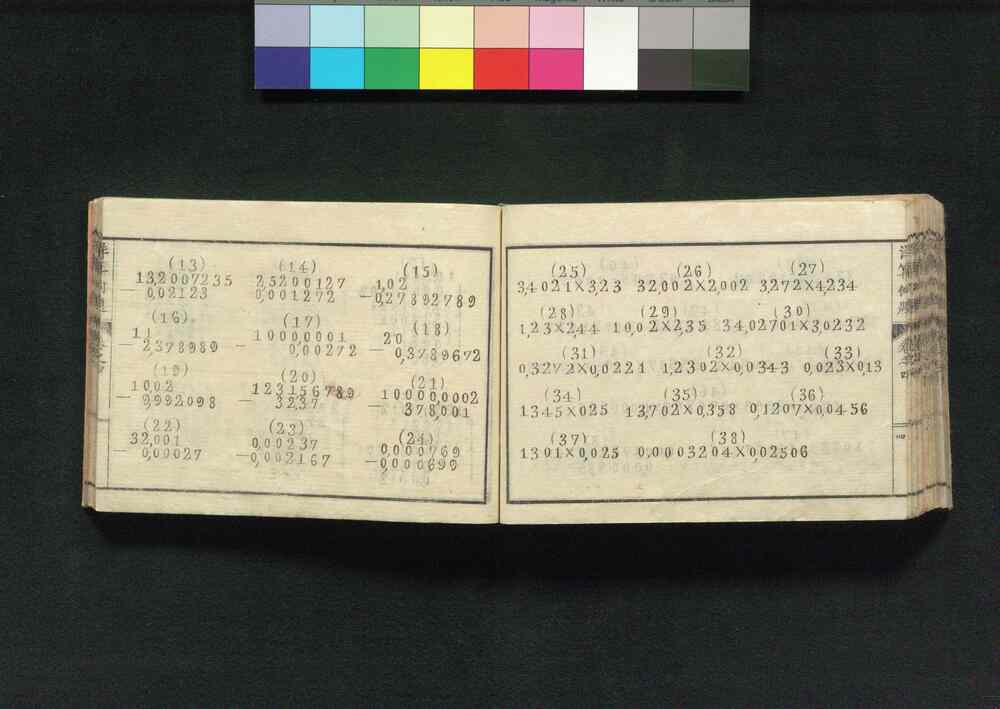 (13) (14) (15)
132007235 25200127 1,02
- 0,02123 0,001272 -0,27892789
(16) (17) (18)
11 10000,0001 20
- 2,378989 - 0,00272 - 0,3789672
(19) (20) (21)
1002 123156789 100000,0002
- 9,992098 - 32,37 - 378,001
(22) (23) (24)
32,001 0,000237 0,000769
- 0,00027 -0,002167 -0,000699
(25) (26) (27)
3,4021×3,23 32,002×2,002 3,272×4,234
(28) (29) (30)
1,23×2,44 10,02×2,35 34,02701×3,0232
(31) (32) (33)
0,3272×0,0221 1,2302×0,0343 0,023×0,13
(34) (35) (36)
1345×025 13,702×0,358 0,1207×0,0456
(37) (38)
1301×0,025 0,0003204×0,02506